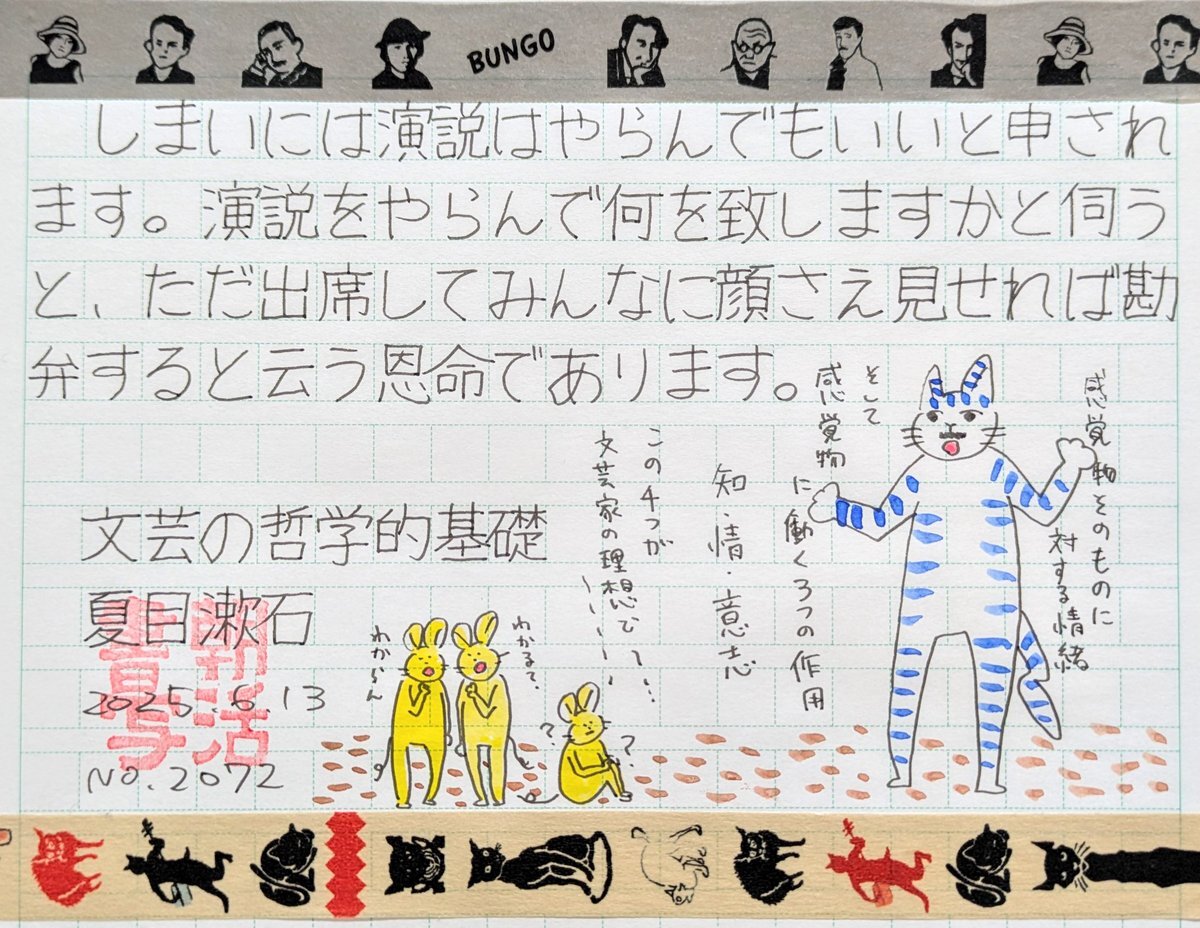 BUNGO
しまいには演説はやらんでもいいと申され
ます。演説をやらんで何を致しますかと伺う
と、ただ出席してみんなに顔さえ見せれば勘
弁すると云う恩命であります。
文芸の哲学的基礎
夏目漱石
2025.6.13
No.2072
朝活
書写
感覚物そのものに
対する情緒
そして
感覚物に働く3つの作用
知・情・意志
この4つが
文芸家の理想で〜〜…
わかるて?
わからん
?
?